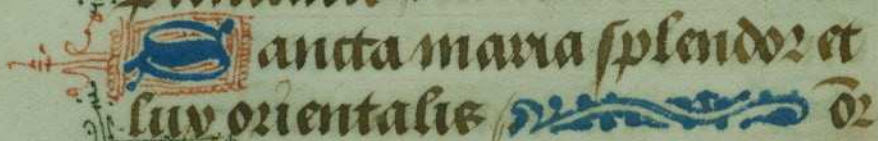 Sancta maria splendor et
lux orientalis or